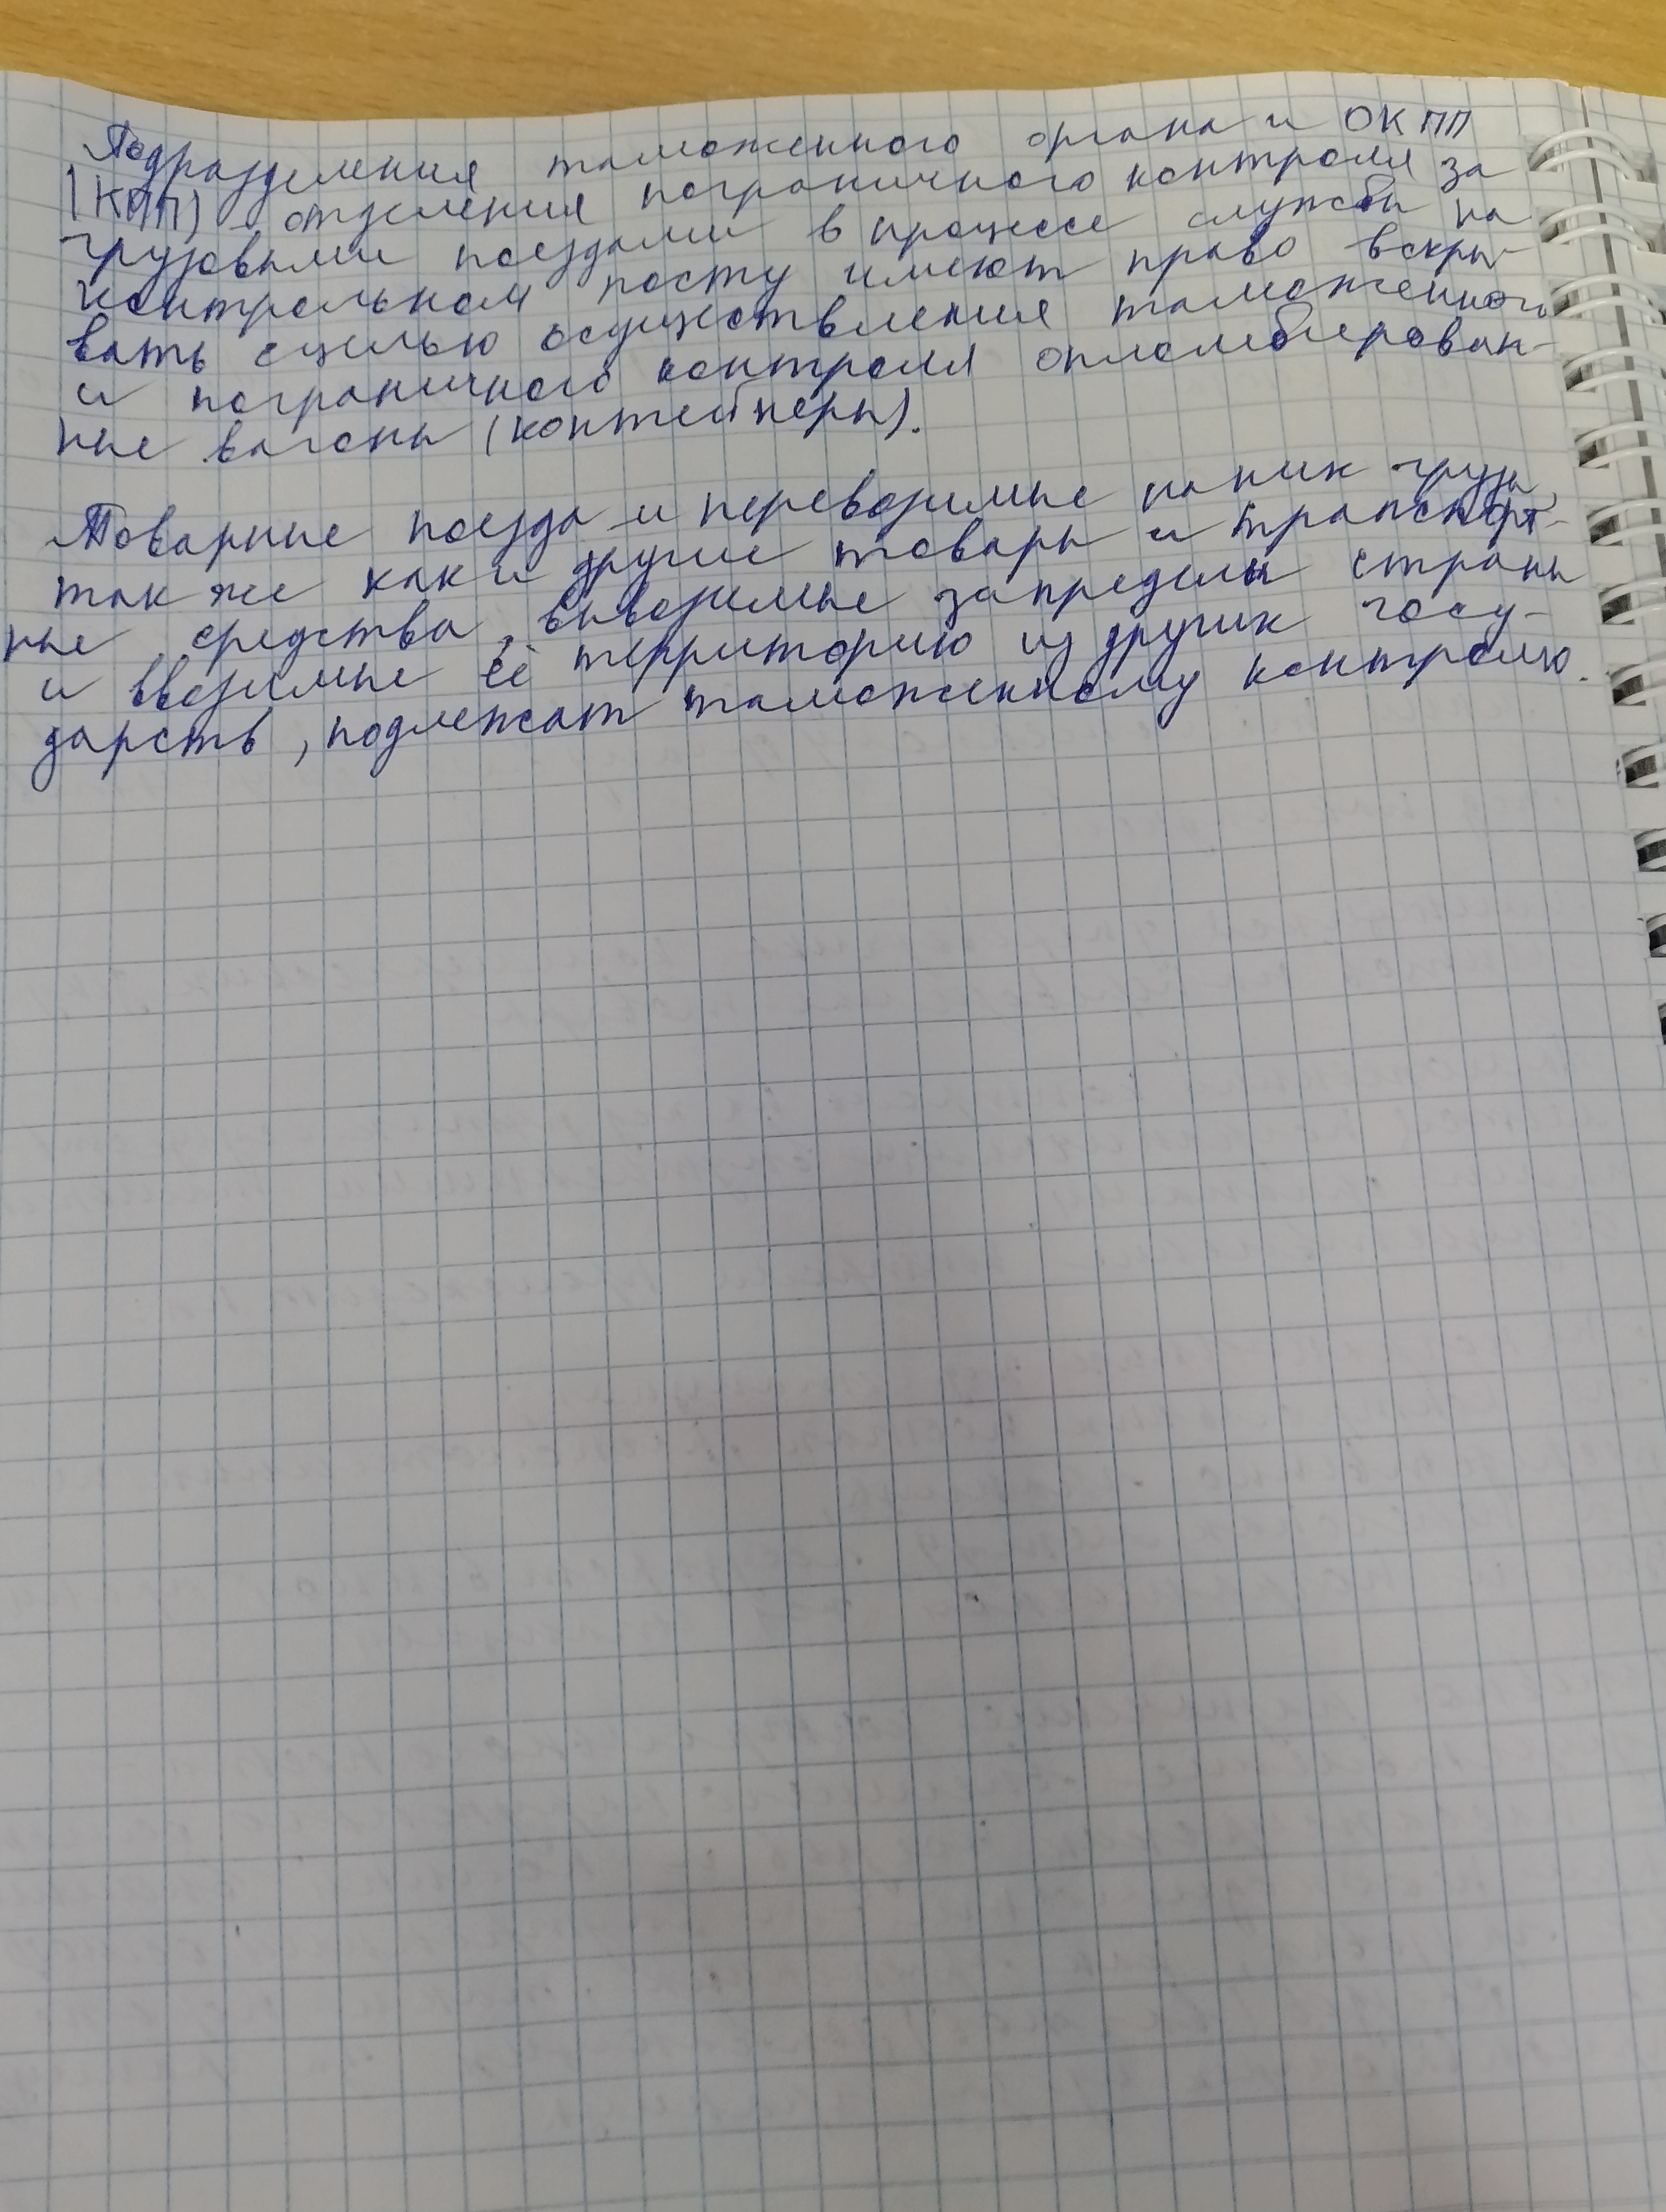 Подразделения таможенного органа и ОКПП
(КПП) - отделения пограничного контроля за
грузовыми поездами в процессе службы на
контрольном посту имеют право вскры-
вать с целью осуществления таможенного
и пограничного контроля опломбирован-
ные вагоны (контейнеры).
Товарные поезда и перевозимые на них грузы,
так же как и другие товары и транспорт-
ные средства, вывозимые за пределы страны
и ввозимые её территорию из других госу-
дарств, подлежат таможенному контролю.